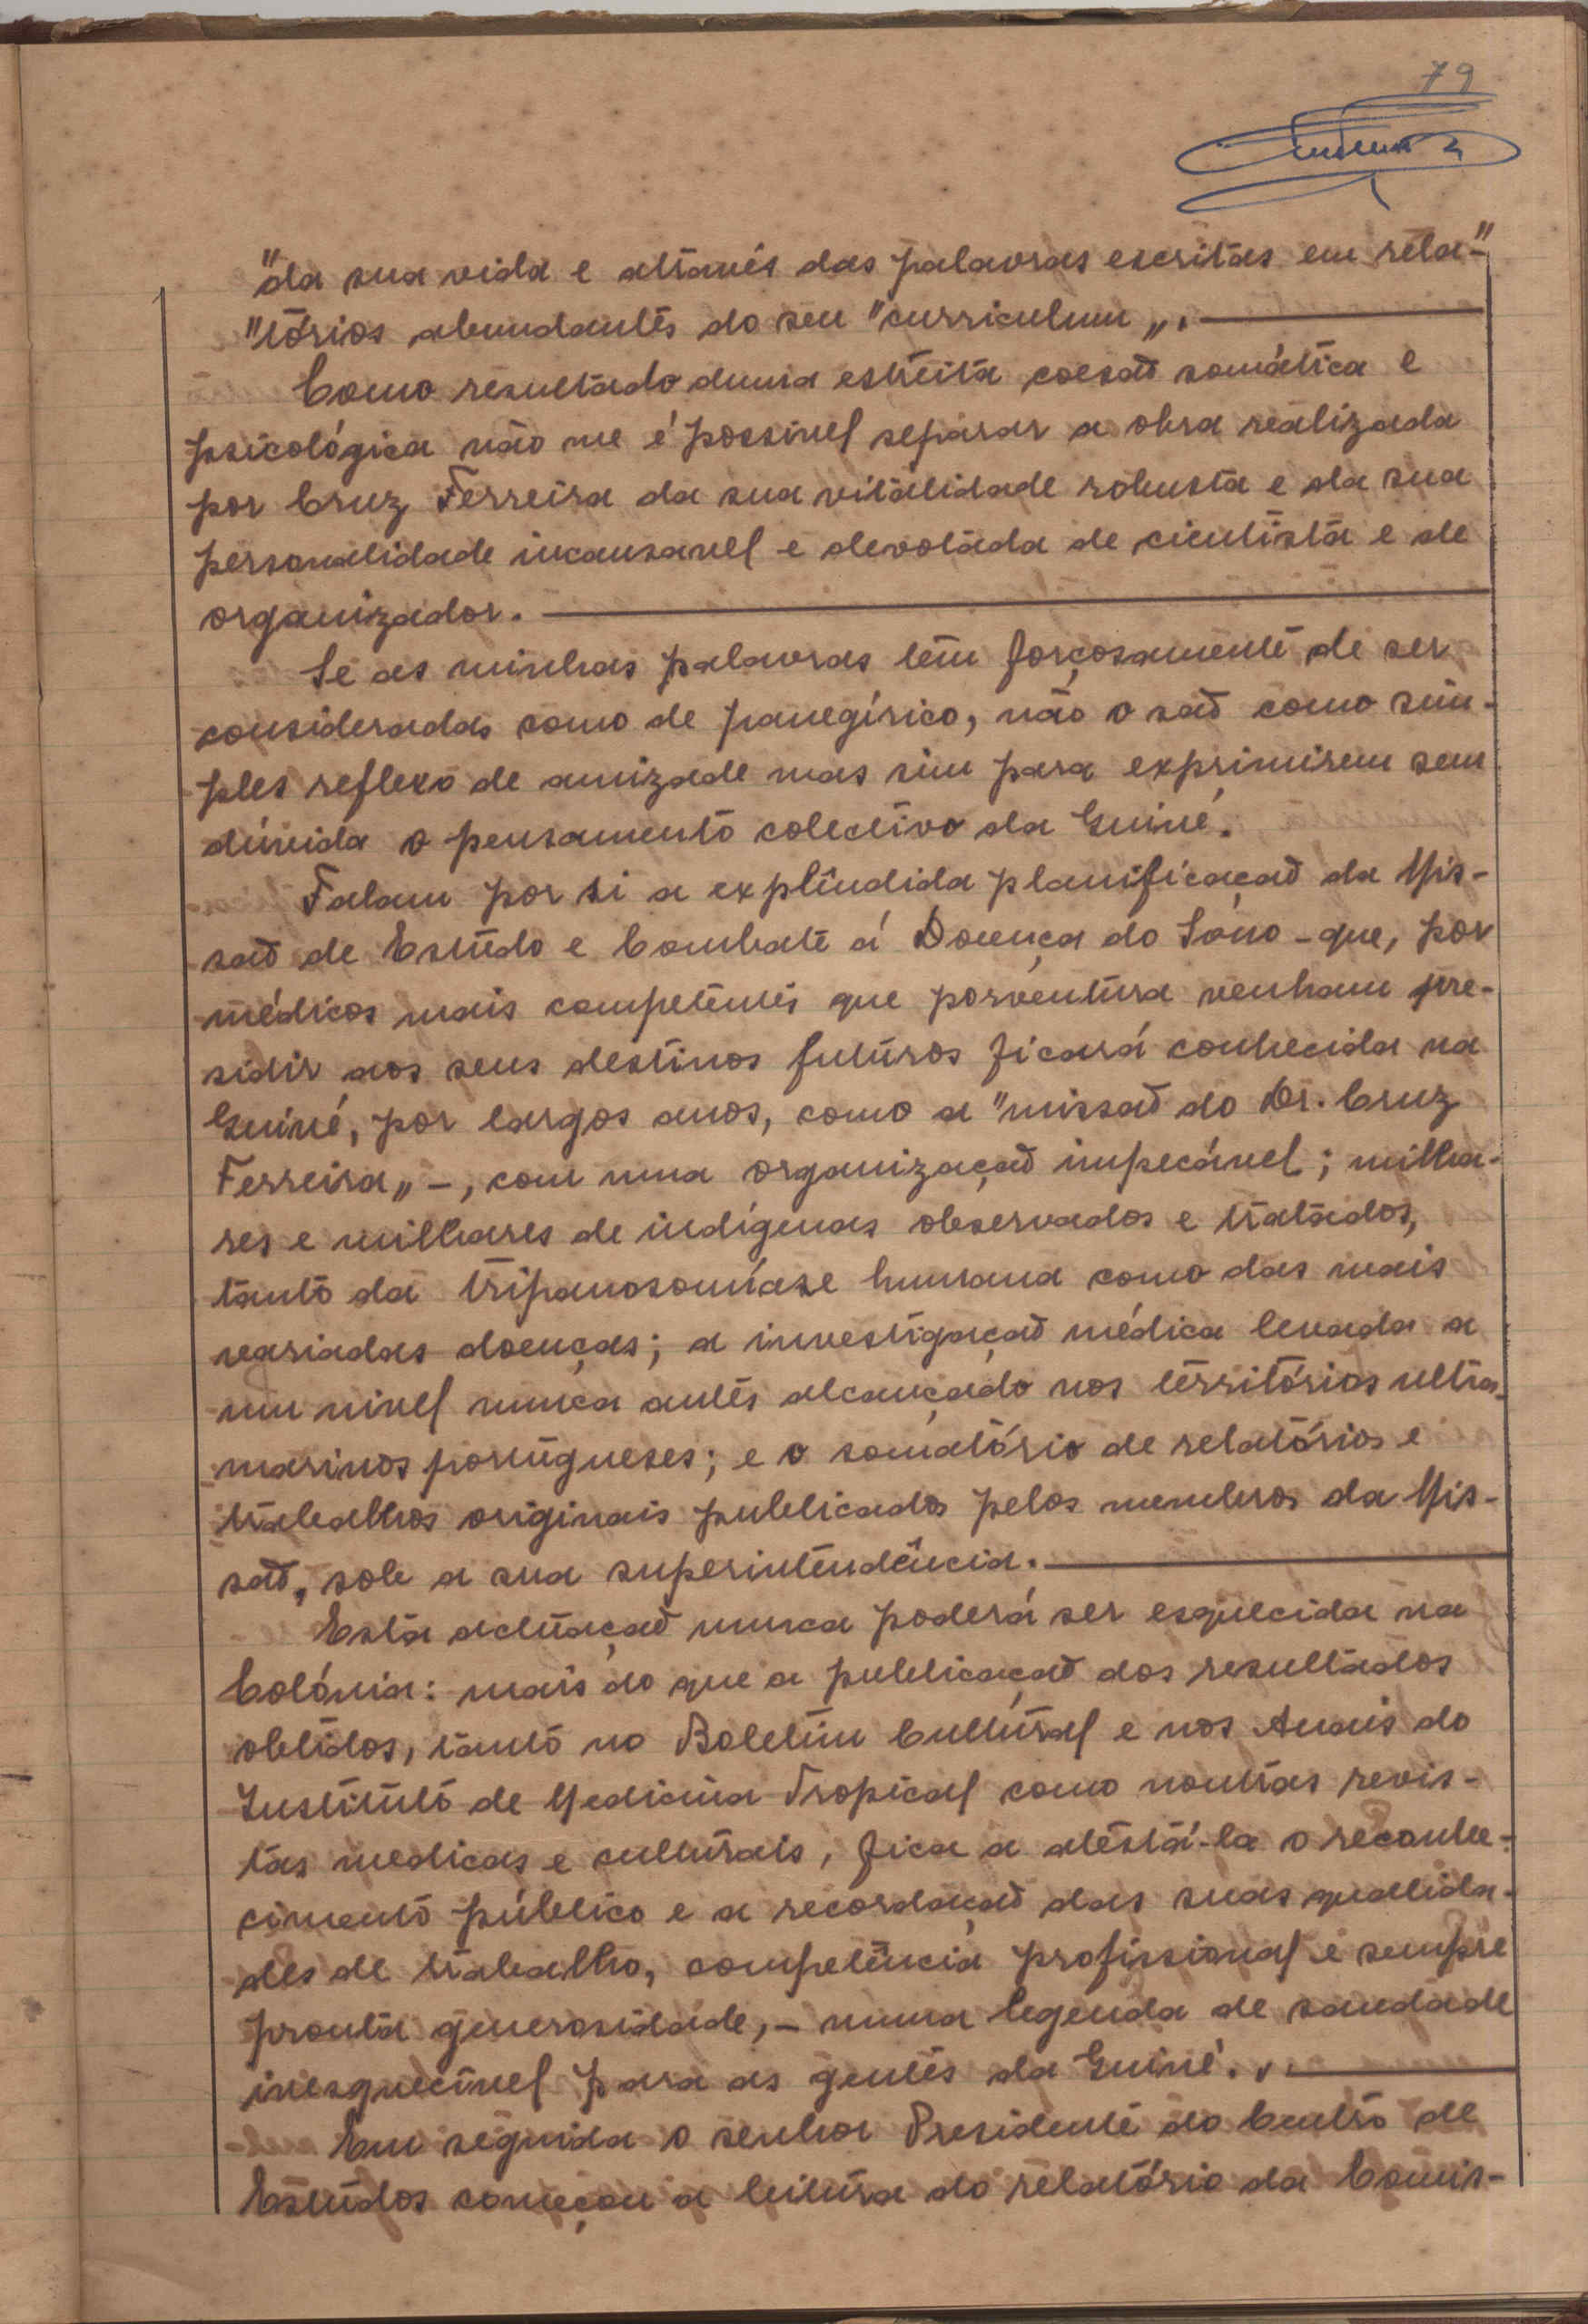 79
"da sua vida e através das palavras escritas em rela-"
"tórios abundantes do seu "curriculum„. 
Como resultado duma estreita coesaõ somática e
psicológica não me é possivel separar a obra realizada
por Cruz Ferreira da sua vitalidade robusta e da sua
personalidade incansavel e devotada de cientista e de
organizador.
Se as minhas palavras têm forçosamente de ser
consideradas como de panegírico, não o saõ como sim-
ples reflexo de amizade mas sim para exprimirem sem
dúvida o pensamento colectivo da Guiné.
Falam por si a explêndida planificaçaõ da Mis-
saõ de Estudo e Combate á Doença do Sono - que, por
médicos mais competentes que porventura venham pre-
sidir aos seus destinos futuros ficará conhecida na
Guiné, por largos anos, como a "missaõ do Dr. Cruz
Ferreira„ -, com uma organizaçaõ impecável; milha-
res e milhares de indígenas observados e tratados,
tanto da tripanosomíase humana como das mais
variadas doenças; a investigaçaõ médica levada a
um nivel nunca antes alcançado nos territórios ultra-
marinos portugueses; e o somatório de relatórios e
trabalhos originais publicados pelos membros da Mis-
saõ, sob a sua superintendência.
Esta actuaçaõ nunca poderá ser esquecida na
Colónia: mais do que a publicaçaõ dos resultados
obtidos, tanto no Boletim Cultural e nos Anais do
Instituto de Medicina Tropical como noutras revis-
tas medicas e culturais, fica a atestá-la o reconhe-
cimento público e a recordaçaõ das suas qualida-
des de trabalho, competência profissional e sempre
pronta generosidade, - numa legenda de saudade
inesquecível para as gentes da Guiné.
Em seguida o senhor Presidente do Centro de
Estudos começou a leitura do relatório da Comis-